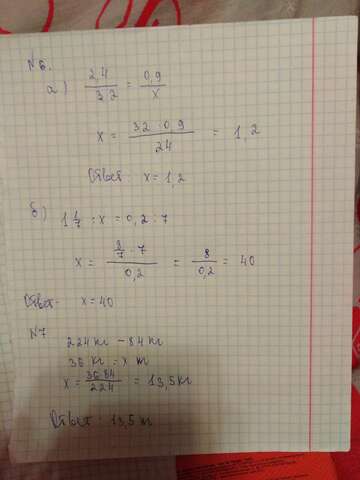 № 6.
а) 2,4 / 3.2 = 0,9 / x
x = 32 · 0,9 / 24 = 1,2
Ответ: x = 1,2
б) 1 1/7 : x = 0,2 : 7
x = 8/7 · 7 / 0,2 = 8 / 0,2 = 40
Ответ: x = 40
№7
224 кг – 84 кг
36 кг – x
x = 36 84 / 224 = 13,5 кг
Ответ: 13,5